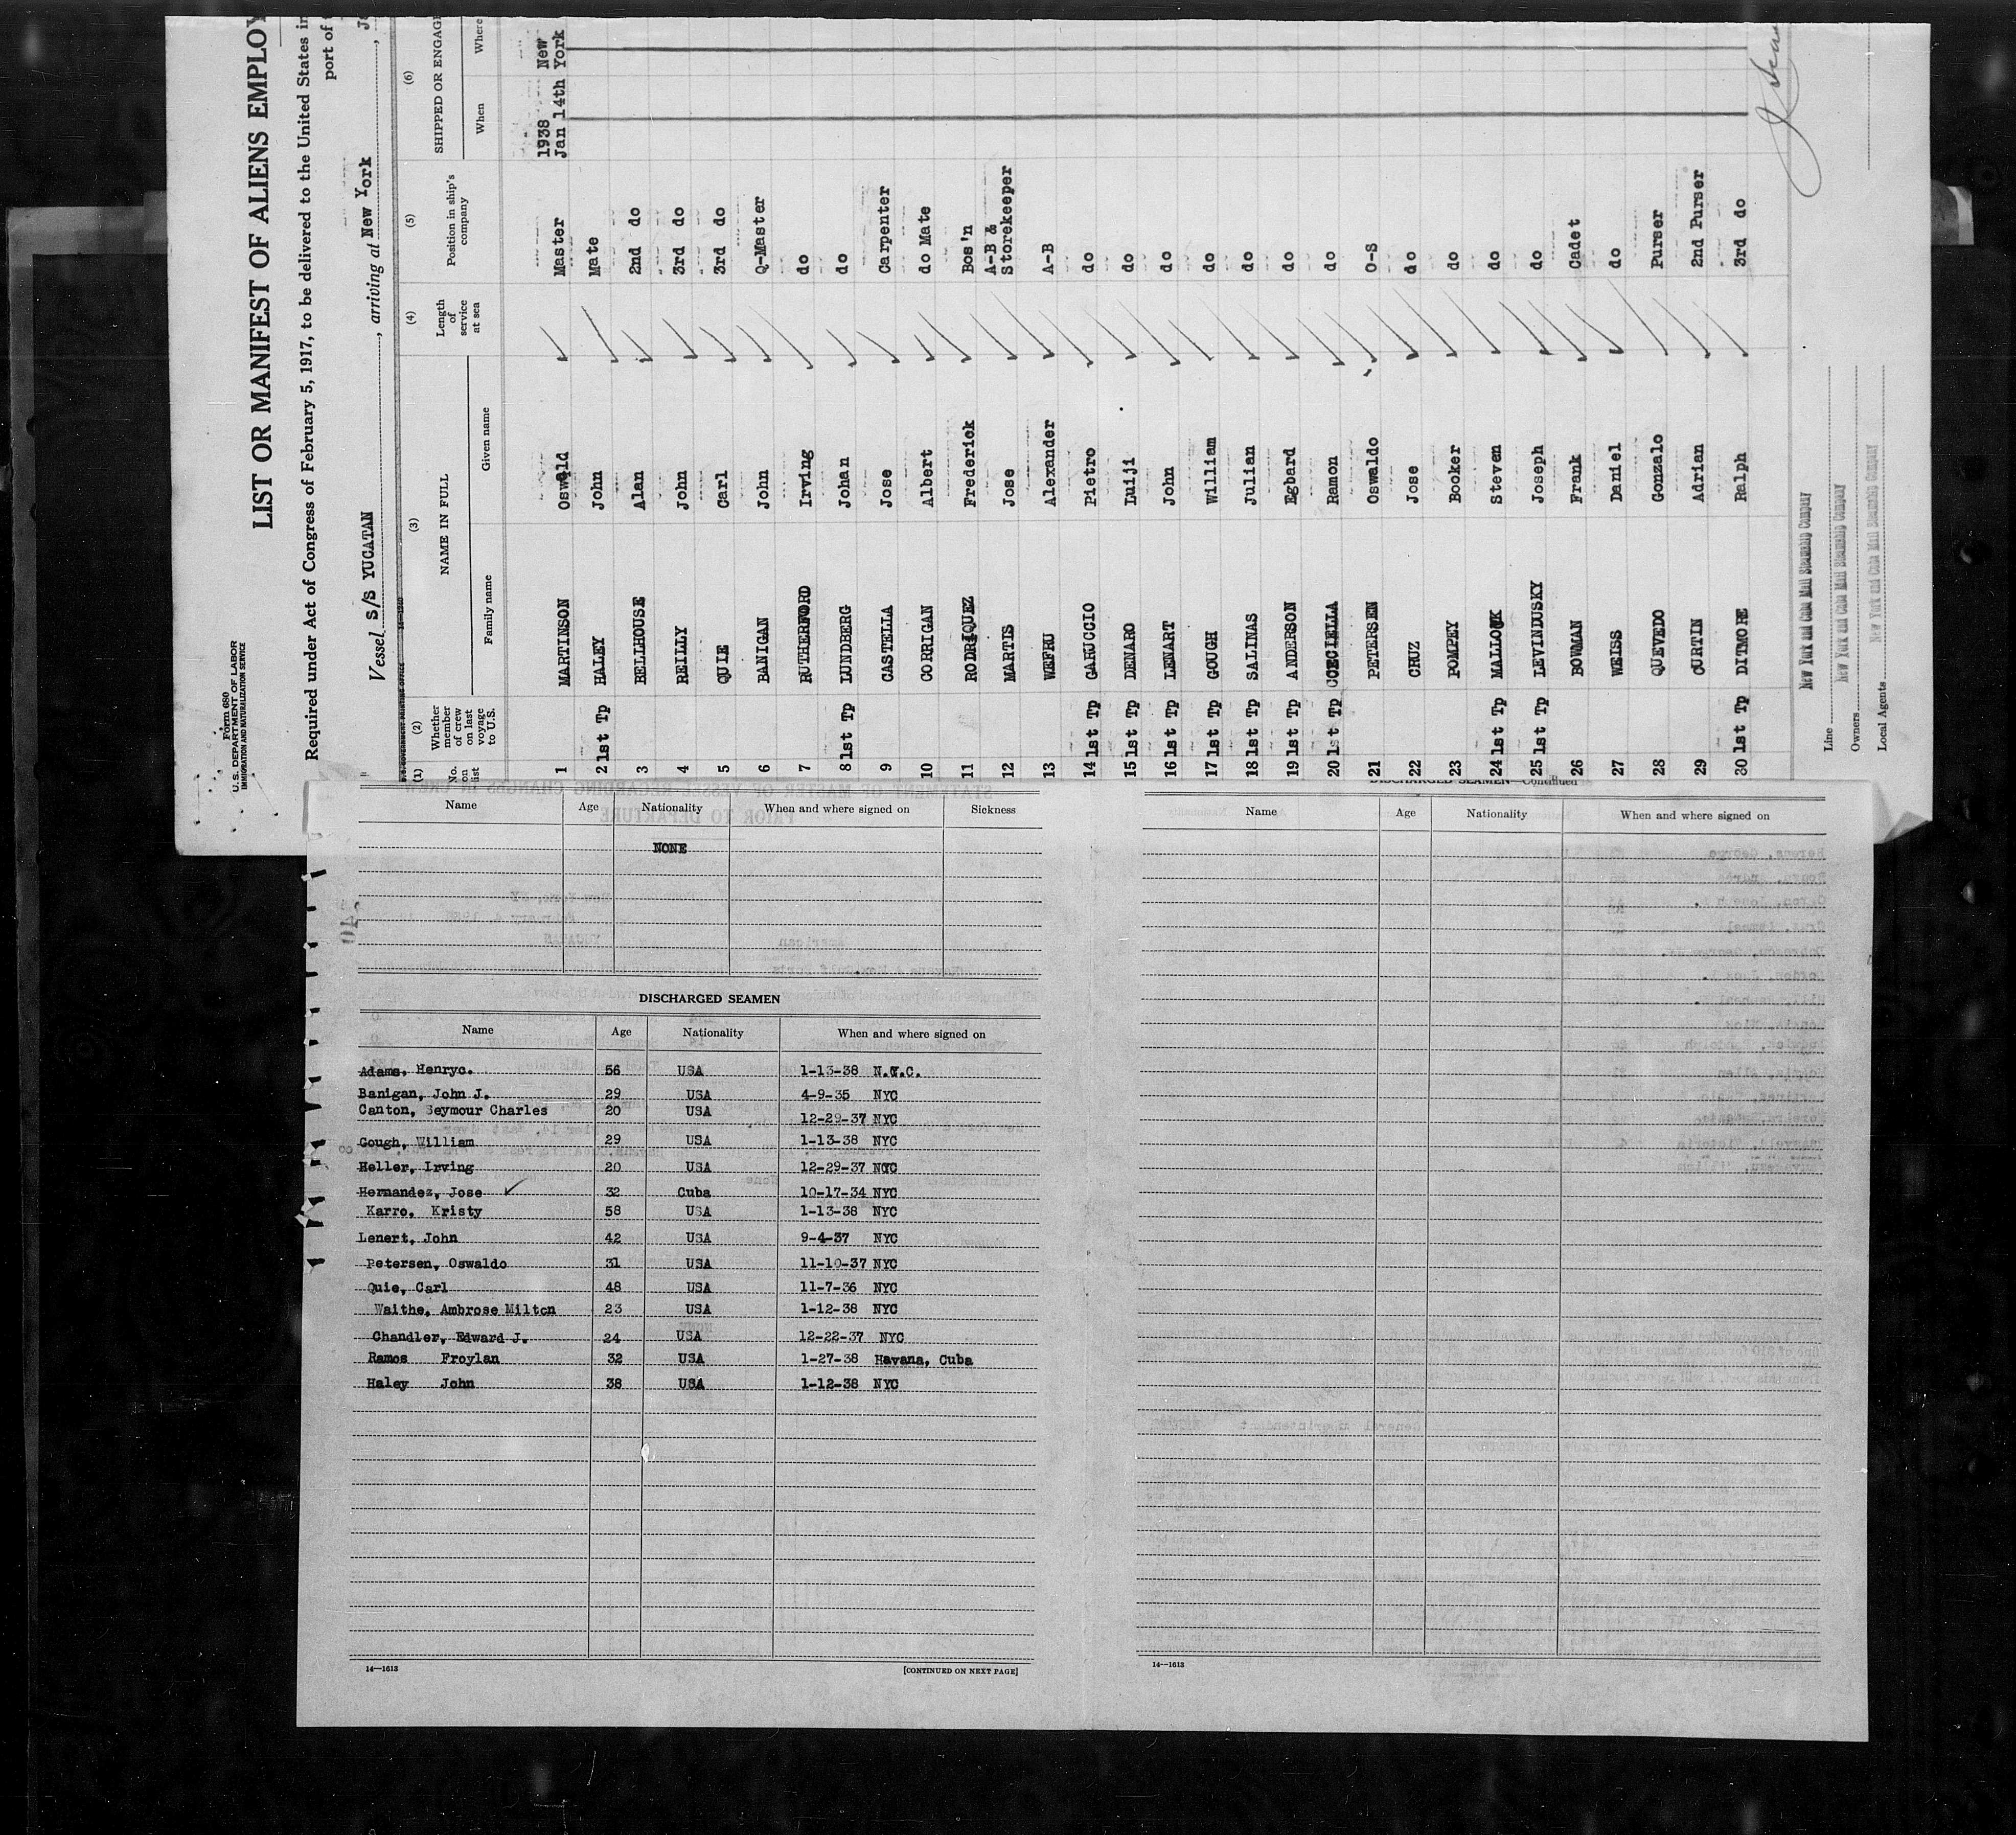 Form 680
U.S. DEPARTMENT OF LABOR
IMMIGRATION AND NATURALIZATION SERVICE
LIST OR MANIFEST OF ALIENS EMPLOY
Required under Act of Congress of February 5, 1917, to be delivered to the United States
port of
Vessel S/S YUCATAN, arriving at New York,
(1) (2) (3) (4) (5) (6)
No. on list Whether member of crew on last voyage to U.S. NAME IN FULL Length of service at sea Position in ship's company SHIPPED OR ENGAG
Family name Given name When Where
1938 New
1 MARTINSON Oswald Master Jan 14th York
2 1st Tp HALEY John Mate
3 BELLHOUSE Alan 2nd do
4 REILLY John 3rd do
5 QUIE Carl 3rd do
6 BANIGAN John Q-Master
7 RUTHERFORD Irving do
8 1st Tp LUNDBERG Johan do
9 CASTELLA Jose Carpenter
10 CORRIGAN Albert do Mate
11 RODRIQUEZ Frederick Bos'n
12 MARTIS Jose A-B & Storekeeper
13 WEFRU Alexander A-B
14 1st Tp GARUCCIO Pietro do
15 1st Tp DENARO Luiji do
16 1st Tp LENART John do
17 1st Tp GOUGH William do
18 1st Tp SALINAS Julian do
19 1st Tp ANDERSON Egbard do
20 1st Tp Ramon do
21 PETERSEN Oswaldo O-S
22 CRUZ Jose do
23 POMPEY Booker do
24 1st Tp Steven do
25 1st Tp LEVINDUSKY Joseph do
26 BOWMAN Frank Cadet
27 WEISS Daniel do
28 QUEVEDO Gonzalo Purser
29 CURTIN Adrian 2nd Purser
30 1st Tp DITMORE Ralph 3rd do
New York and Cuba Mail Steamship Company
Line
New York and Cuba Mail Steamship Company
Owners
New York and Cuba Mail Steamship Company
Local Agents
Name Age Nationality When and where signed on Sickness
NONE
DISCHARGED SEAMEN
Name Age Nationality When and where signed on
Adams, Henryc. 56 USA 1-13-38 N.Y.C.
Banigan, John J. 29 USA 4-9-35 NYC
Canton, Seymour Charles 20 USA 12-29-37 NYC
Gough, William 29 USA 1-13-38 NYC
Heller, Irving 20 USA 12-29-37 NYC
Hernandez, Jose 32 Cuba 10-17-34 NYC
Karro, Kristy 58 USA 1-13-38 NYC
Lenert, John 42 USA 9-4-37 NYC
Petersen, Oswaldo 31 USA 11-10-37 NYC
Quie, Carl 48 USA 11-7-36 NYC
Waithe, Ambrose Milton 23 USA 1-12-38 NYC
Chandler, Edward J. 24 USA 12-22-37 NYC
Ramos Froylan 32 USA 1-27-38 Havana, Cuba
Haley John 38 USA 1-12-38 NYC
14—1613 [CONTINUED ON NEXT PAGE]
DISCHARGED SEAMEN—Continued
Name Age Nationality When and where signed on
14—1613